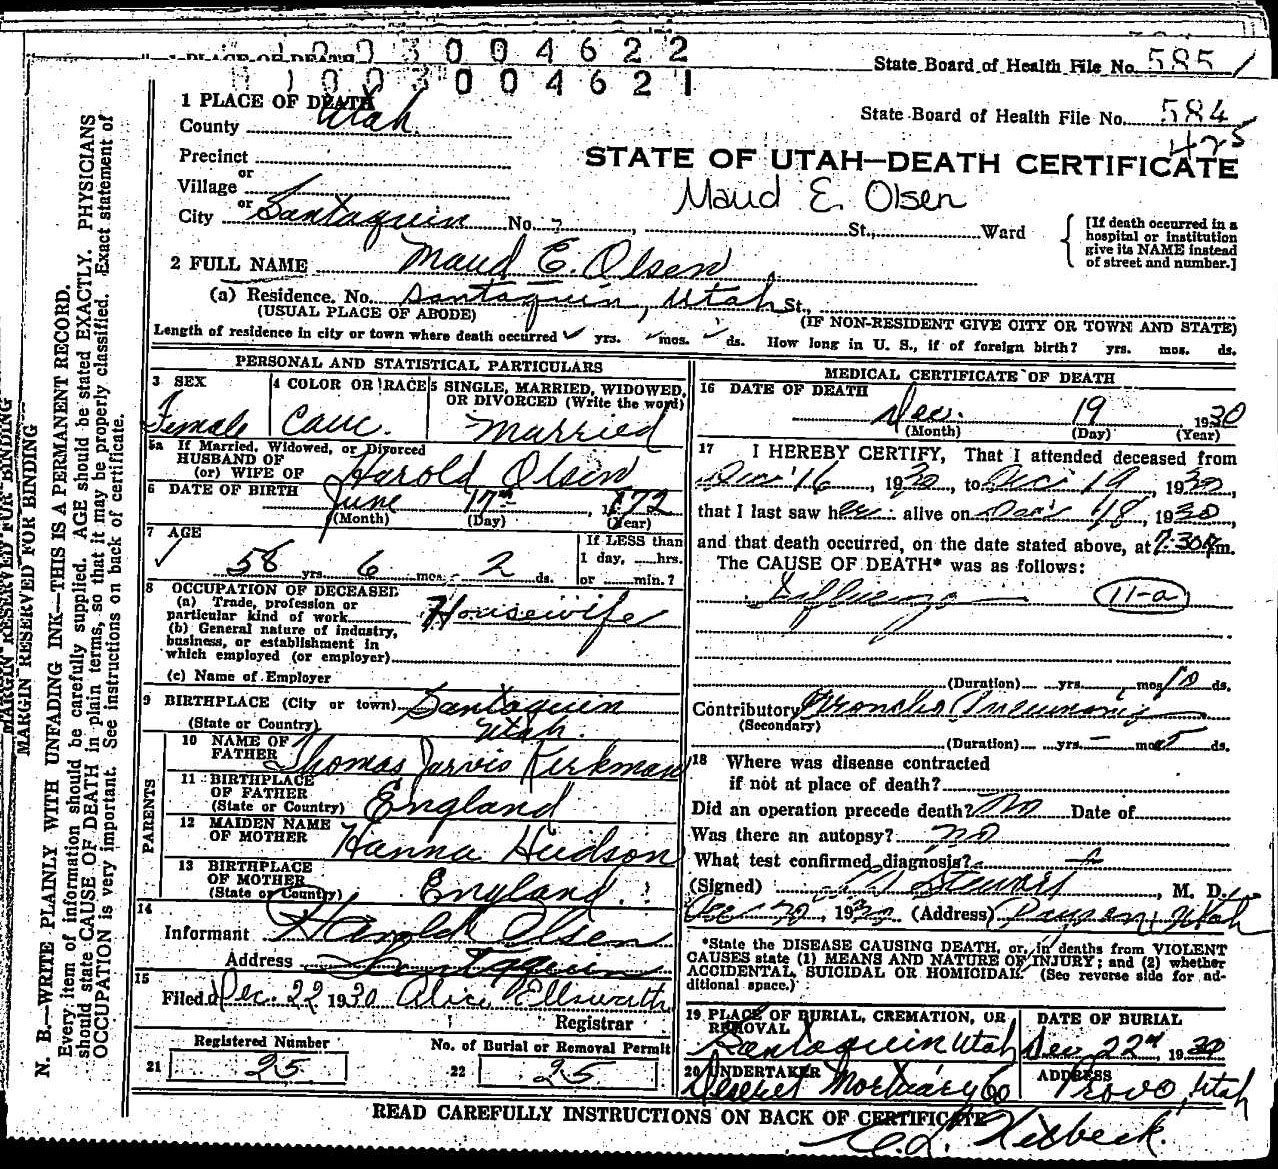 1003004622
State Board of Health File No. 585
1003004621
1 PLACE OF DEATH
State Board of Health File No. 584
425
County Utah
STATE OF UTAH—DEATH CERTIFICATE
Precinct
or
Village
Maud E. Olsen
or
City Santaquin No. St., Ward
[If death occurred in a
hospital or institution
give its NAME instead
of street and number.]
2 FULL NAME Maud E. Olsen
(a) Residence. No. Santaquin, Utah St.,
(USUAL PLACE OF ABODE)
(IF NON-RESIDENT GIVE CITY OR TOWN AND STATE)
Length of residence in city or town where death occurred yrs. mos. ds. How long in U. S., if of foreign birth? yrs. mos. ds.
PERSONAL AND STATISTICAL PARTICULARS
3 SEX
Female
4 COLOR OR RACE
Cauc.
5 SINGLE, MARRIED, WIDOWED,
OR DIVORCED (Write the word)
Married
5a If Married, Widowed, or Divorced
HUSBAND OF
(or) WIFE OF Harold Olsen
6 DATE OF BIRTH June 17th, 1872
(Month) (Day) (Year)
7 AGE
58 yrs. 6 mos. 2 ds.
If LESS than
1 day, hrs.
or min.?
8 OCCUPATION OF DECEASED
(a) Trade, profession or
particular kind of work Housewife
(b) General nature of industry,
business, or establishment in
which employed (or employer)
(c) Name of Employer
9 BIRTHPLACE (City or town) Santaquin
(State or Country) Utah.
PARENTS
10 NAME OF
FATHER Thomas Jarvis Kirkman
11 BIRTHPLACE
OF FATHER
(State or Country) England
12 MAIDEN NAME
OF MOTHER Hanna Hudson
13 BIRTHPLACE
OF MOTHER
(State or Country) England.
14
Informant Harold Olsen
Address Santaquin
15
Filed Dec. 22 1930 Alice Ellsworth
Registrar
Registered Number
21 25
No. of Burial or Removal Permit
22 25
MEDICAL CERTIFICATE OF DEATH
16 DATE OF DEATH
Dec. 19 1930
(Month) (Day) (Year)
17 I HEREBY CERTIFY, That I attended deceased from
Dec. 16, 1930, to Dec. 19, 1930,
that I last saw her alive on Dec. 18, 1930,
and that death occurred, on the date stated above, at 7:30 m.
The CAUSE OF DEATH* was as follows:
Influenza 11-a
(Duration) yrs. mos. 10 ds.
Contributory Broncho Pneumonia
(Secondary)
(Duration) yrs. — mos. 5 ds.
18 Where was disease contracted
if not at place of death?
Did an operation precede death? No Date of
Was there an autopsy? no
What test confirmed diagnosis?
(Signed) Stewart, M. D.
Dec 20, 1930 (Address) Payson, Utah
*State the DISEASE CAUSING DEATH, or, in deaths from VIOLENT
CAUSES state (1) MEANS AND NATURE OF INJURY; and (2) whether
ACCIDENTAL, SUICIDAL OR HOMICIDAL. (See reverse side for ad-
ditional space.)
19 PLACE OF BURIAL, CREMATION, OR
REMOVAL
Santaquin Utah
DATE OF BURIAL
Dec 22nd, 1930
20 UNDERTAKER
Deseret Mortuary Co
ADDRESS
Provo, Utah
READ CAREFULLY INSTRUCTIONS ON BACK OF CERTIFICATE
MARGIN RESERVED FOR BINDING
MARGIN RESERVED FOR BINDING
N. B.—WRITE PLAINLY WITH UNFADING INK—THIS IS A PERMANENT RECORD.
Every item of information should be carefully supplied. AGE should be stated EXACTLY. PHYSICIANS
should state CAUSE OF DEATH in plain terms, so that it may be properly classified. Exact statement of
OCCUPATION is very important. See instructions on back of certificate.